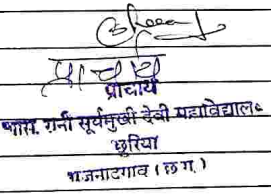 प्राचार्य
प्राचार्य
शास. रानी सूर्यमुखी देवी महाविद्यालय
छुरिया
राजनांदगांव (छ.ग.)